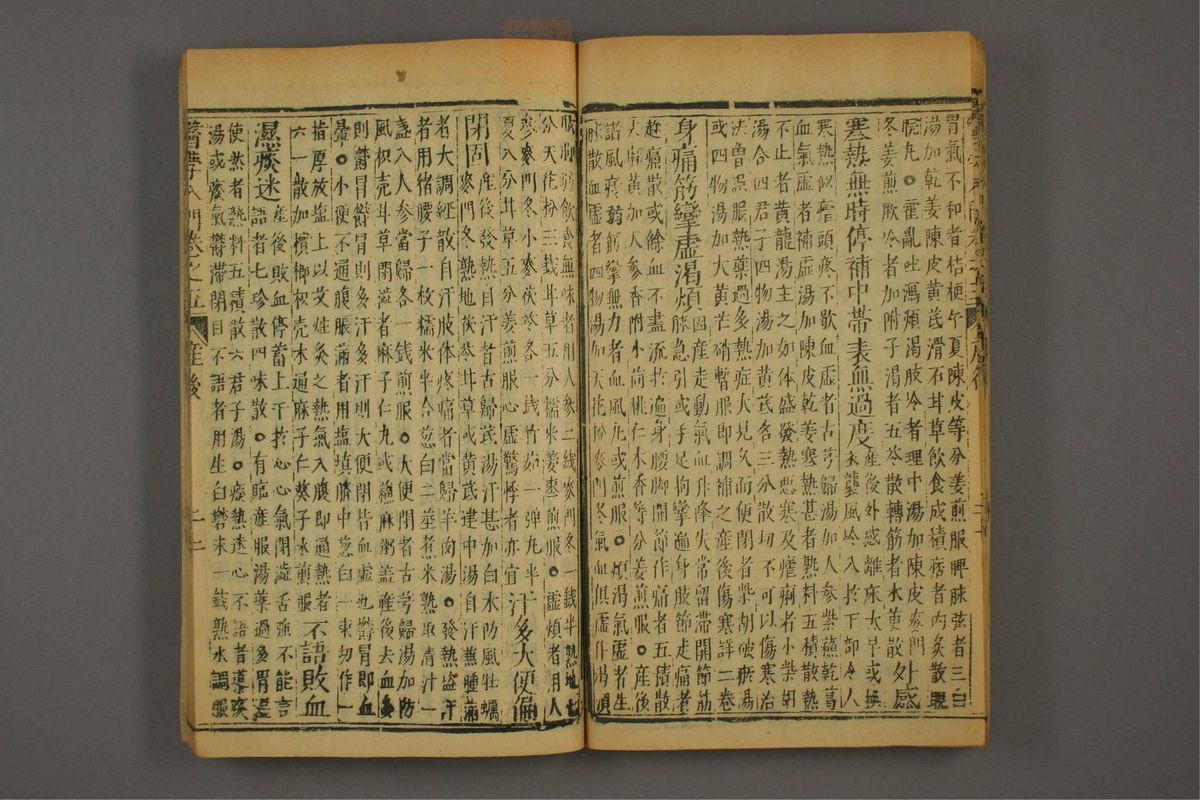 胃氣不和者桔梗半夏陳皮等分姜煎服脾脉弦者三白
湯加乾姜陳皮黃芪滑石甘草飲食成積痞者內灸散睍
睆丸○霍亂吐瀉煩渴肢冷者理中湯加陳皮麥門
冬姜煎厥冷者加附子渴者五苓散轉筋者木萸散外感
寒熱無時停補中帶表無過度產後外感離床太早或換
衣襲風冷入於下部令人
寒熱似瘧頭疼不歇血虛者古芎歸湯加人參紫蘇乾葛
血氣虛者補虛湯加陳皮乾姜寒熱甚者熟料五積散熱
不止者黃龍湯主之如体盛發熱惡寒及瘧痢者小柴胡
湯合四君子四物湯加黃芪各三分散切不可以傷寒治
法曾誤服熱藥過多熱症大見久而便閉者柴胡破瘀湯
或四物湯加大黃芒硝暫服即調補之產後傷寒詳二卷
身痛筋攣虛渴煩因產走動氣血升降失常留滯關節筋
脉急引或手足拘攣遍身肢節走痛者
趁痛散或餘血不盡流於遍身腰脚關節作痛者五積散
去麻黃加人參香附小茴桃仁木香等分姜煎服○產後
諸風痿弱筋攣無力者血風丸或煎服○煩渴氣虛者生
脉散血虛者四物湯加天花粉麥門冬氣血俱虛作渴煩
分天花粉三錢甘草五分糯米姜棗煎服○虛煩者用人
參麥門冬小麥茯苓各一錢竹茹一彈丸半
夏八分甘草五分姜煎服心虛驚悸者亦宜汗多大便偏
閉固產後發熱自汗者古歸芪湯汗甚加白朮防風牡蠣
麥門冬熟地茯苓甘草或黃芪建中湯自汗兼腫滿
者大調經散自汗肢体疼痛者當歸羊肉湯○發熱盜汗
者用猪腰子一枚糯米半合葱白二莖煮米熟取清汁一
盞入人參當歸各一錢煎服○大便閉者古芎歸湯加防
風枳壳甘草閉澁者麻子仁丸或蘇麻粥盖產後去血多
則鬱冒鬱冒則多汗多汗則大便閉皆血虛也鬱冒即血
暈○小便不通腹脹滿者用塩填臍中葱白一束切作一
指厚放塩上以艾炷灸之熱氣入腹即通熱者
六一散加檳榔枳壳木通麻子仁葵子水煎服不語敗血
濕痰迷產後敗血停蓄上干於心心氣閉澁舌強不能言
語者七珍散四味散○有臨產服湯藥過多胃濕
使然者熟料五積散六君子湯○痰熱迷心不語者導痰
湯或痰氣鬱滯閉目不語者用生白礬末一錢熟水調服
醫學入門卷之五 產後